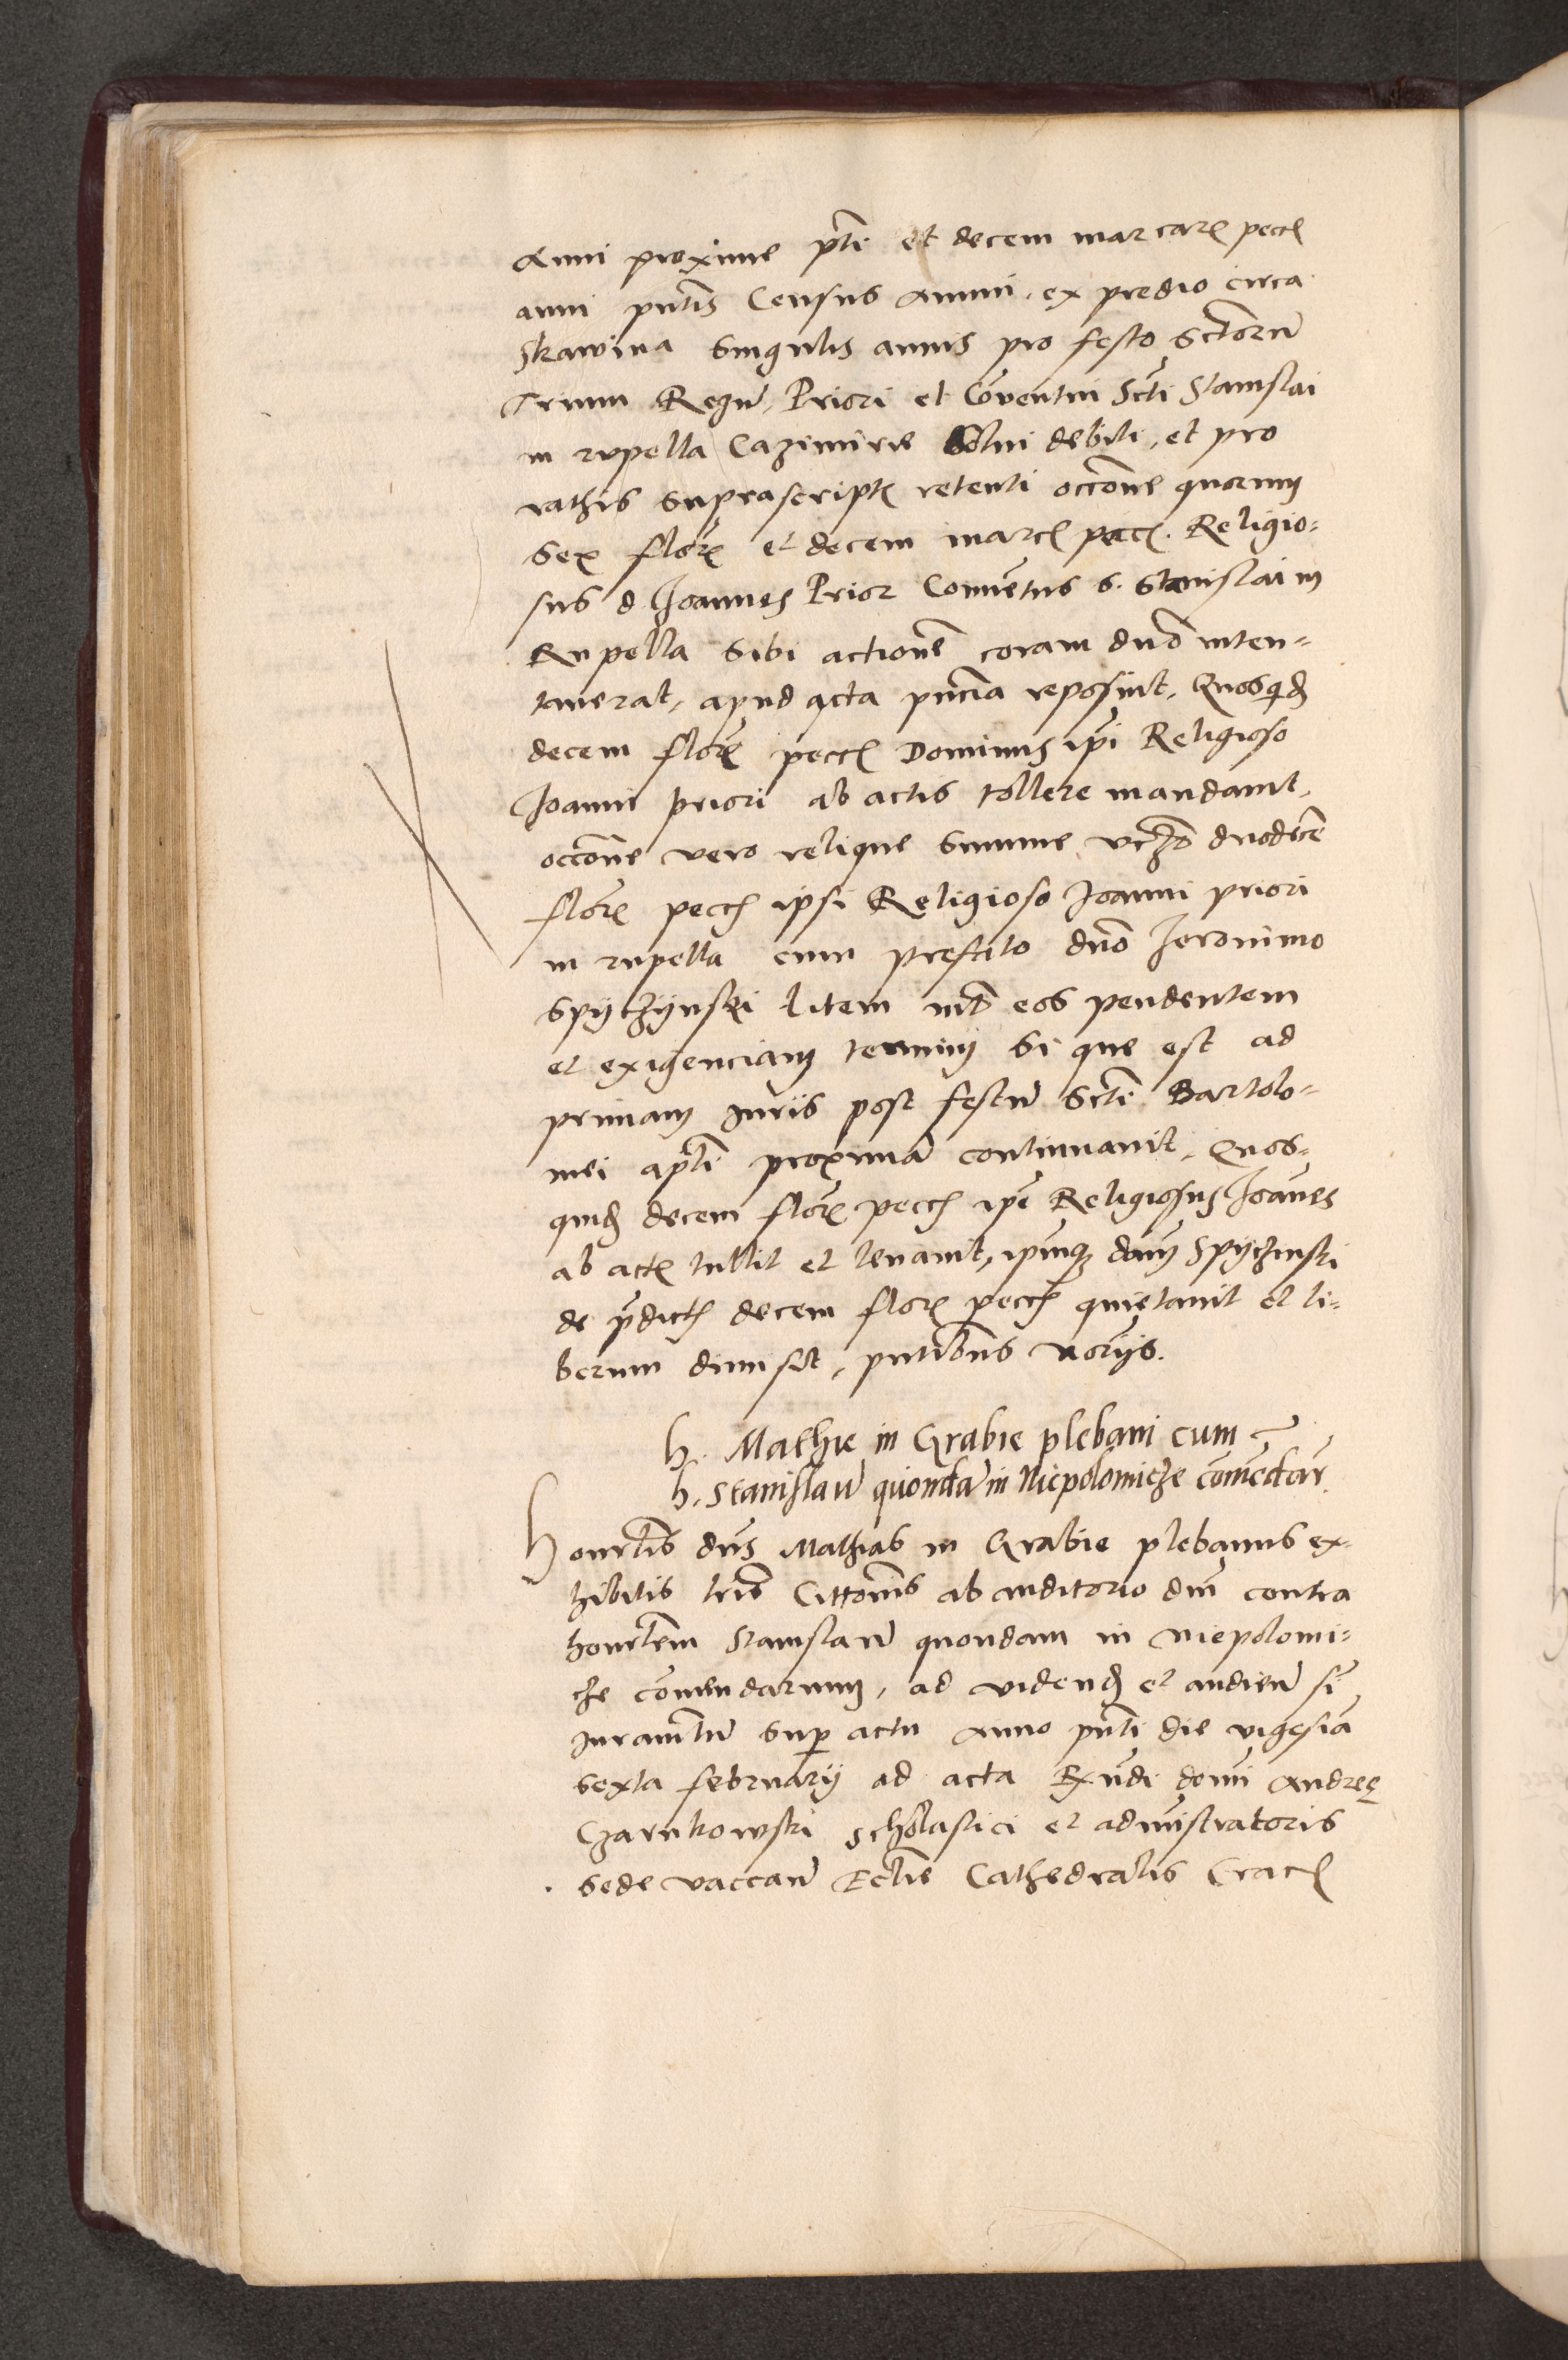 Anni proxime pṙti et decem marcarꝫ pecꝫ
anni pntis Census annui, ex predio circa
Skawina singulis annis pro festo Sctorũ
Trium Regũ, Priori et Cõventui Scti Stanislai
in rupella Cazimirie solui debiti, et pro
rathis suprascriptꝫ retenti occone quorum
sex florꝫ et decem marcꝫ pecꝫ. Religio=
sus d Joannes Prior Conuẽtus S. Stanislai in
Rupella sibi actionẽ coram dno inten=
tauerat, apud acta pncia reposuit, Quosqdꝫ
decem florꝫ peccꝫ Dominus ipi Religioso
Joanni priori ab actis tollere mandauit,
occone vero relique summe vczo duodecẽ
florꝫ peccꝫ ipsi Religioso Joanni priori
in rupella cum prefato dno Jeronimo
Spyczynski litem int eos pendentem
et exigenciam termini si que est ad
primam Juris post festũ Scti Bartolo=
mei apti proximã continuauit, Quos=
quidꝫ decem florꝫ peccꝫ ipe Religiosus Joañes
ab actꝫ tullit et leuauit, ipumqꝫ dnum Spyczinski
de pdictꝫ decem florꝫ peccꝫ quietauit et li=
berum dimisit, pntibus uorijs.
h. Mathie in Grabie plebani cum
h. Stanislaũ quondã in Niepolomicze comẽdar.
Honrlis dns Mathias in Grabie plebanus ex=
hibitis lris Cittonis ab auditorio dni contra
honrlem Stanislaũ quondam in Niepolomi=
cze comendarium, ad videndꝫ et audien si
Juramtũ sup actu Anno pnti die vigesia
sexta februarij ad acta Rxndi domi Andreę
Czarnkowski scholastici et administratoris
sede vaccan Ecclie Cathedralis Cracꝫ